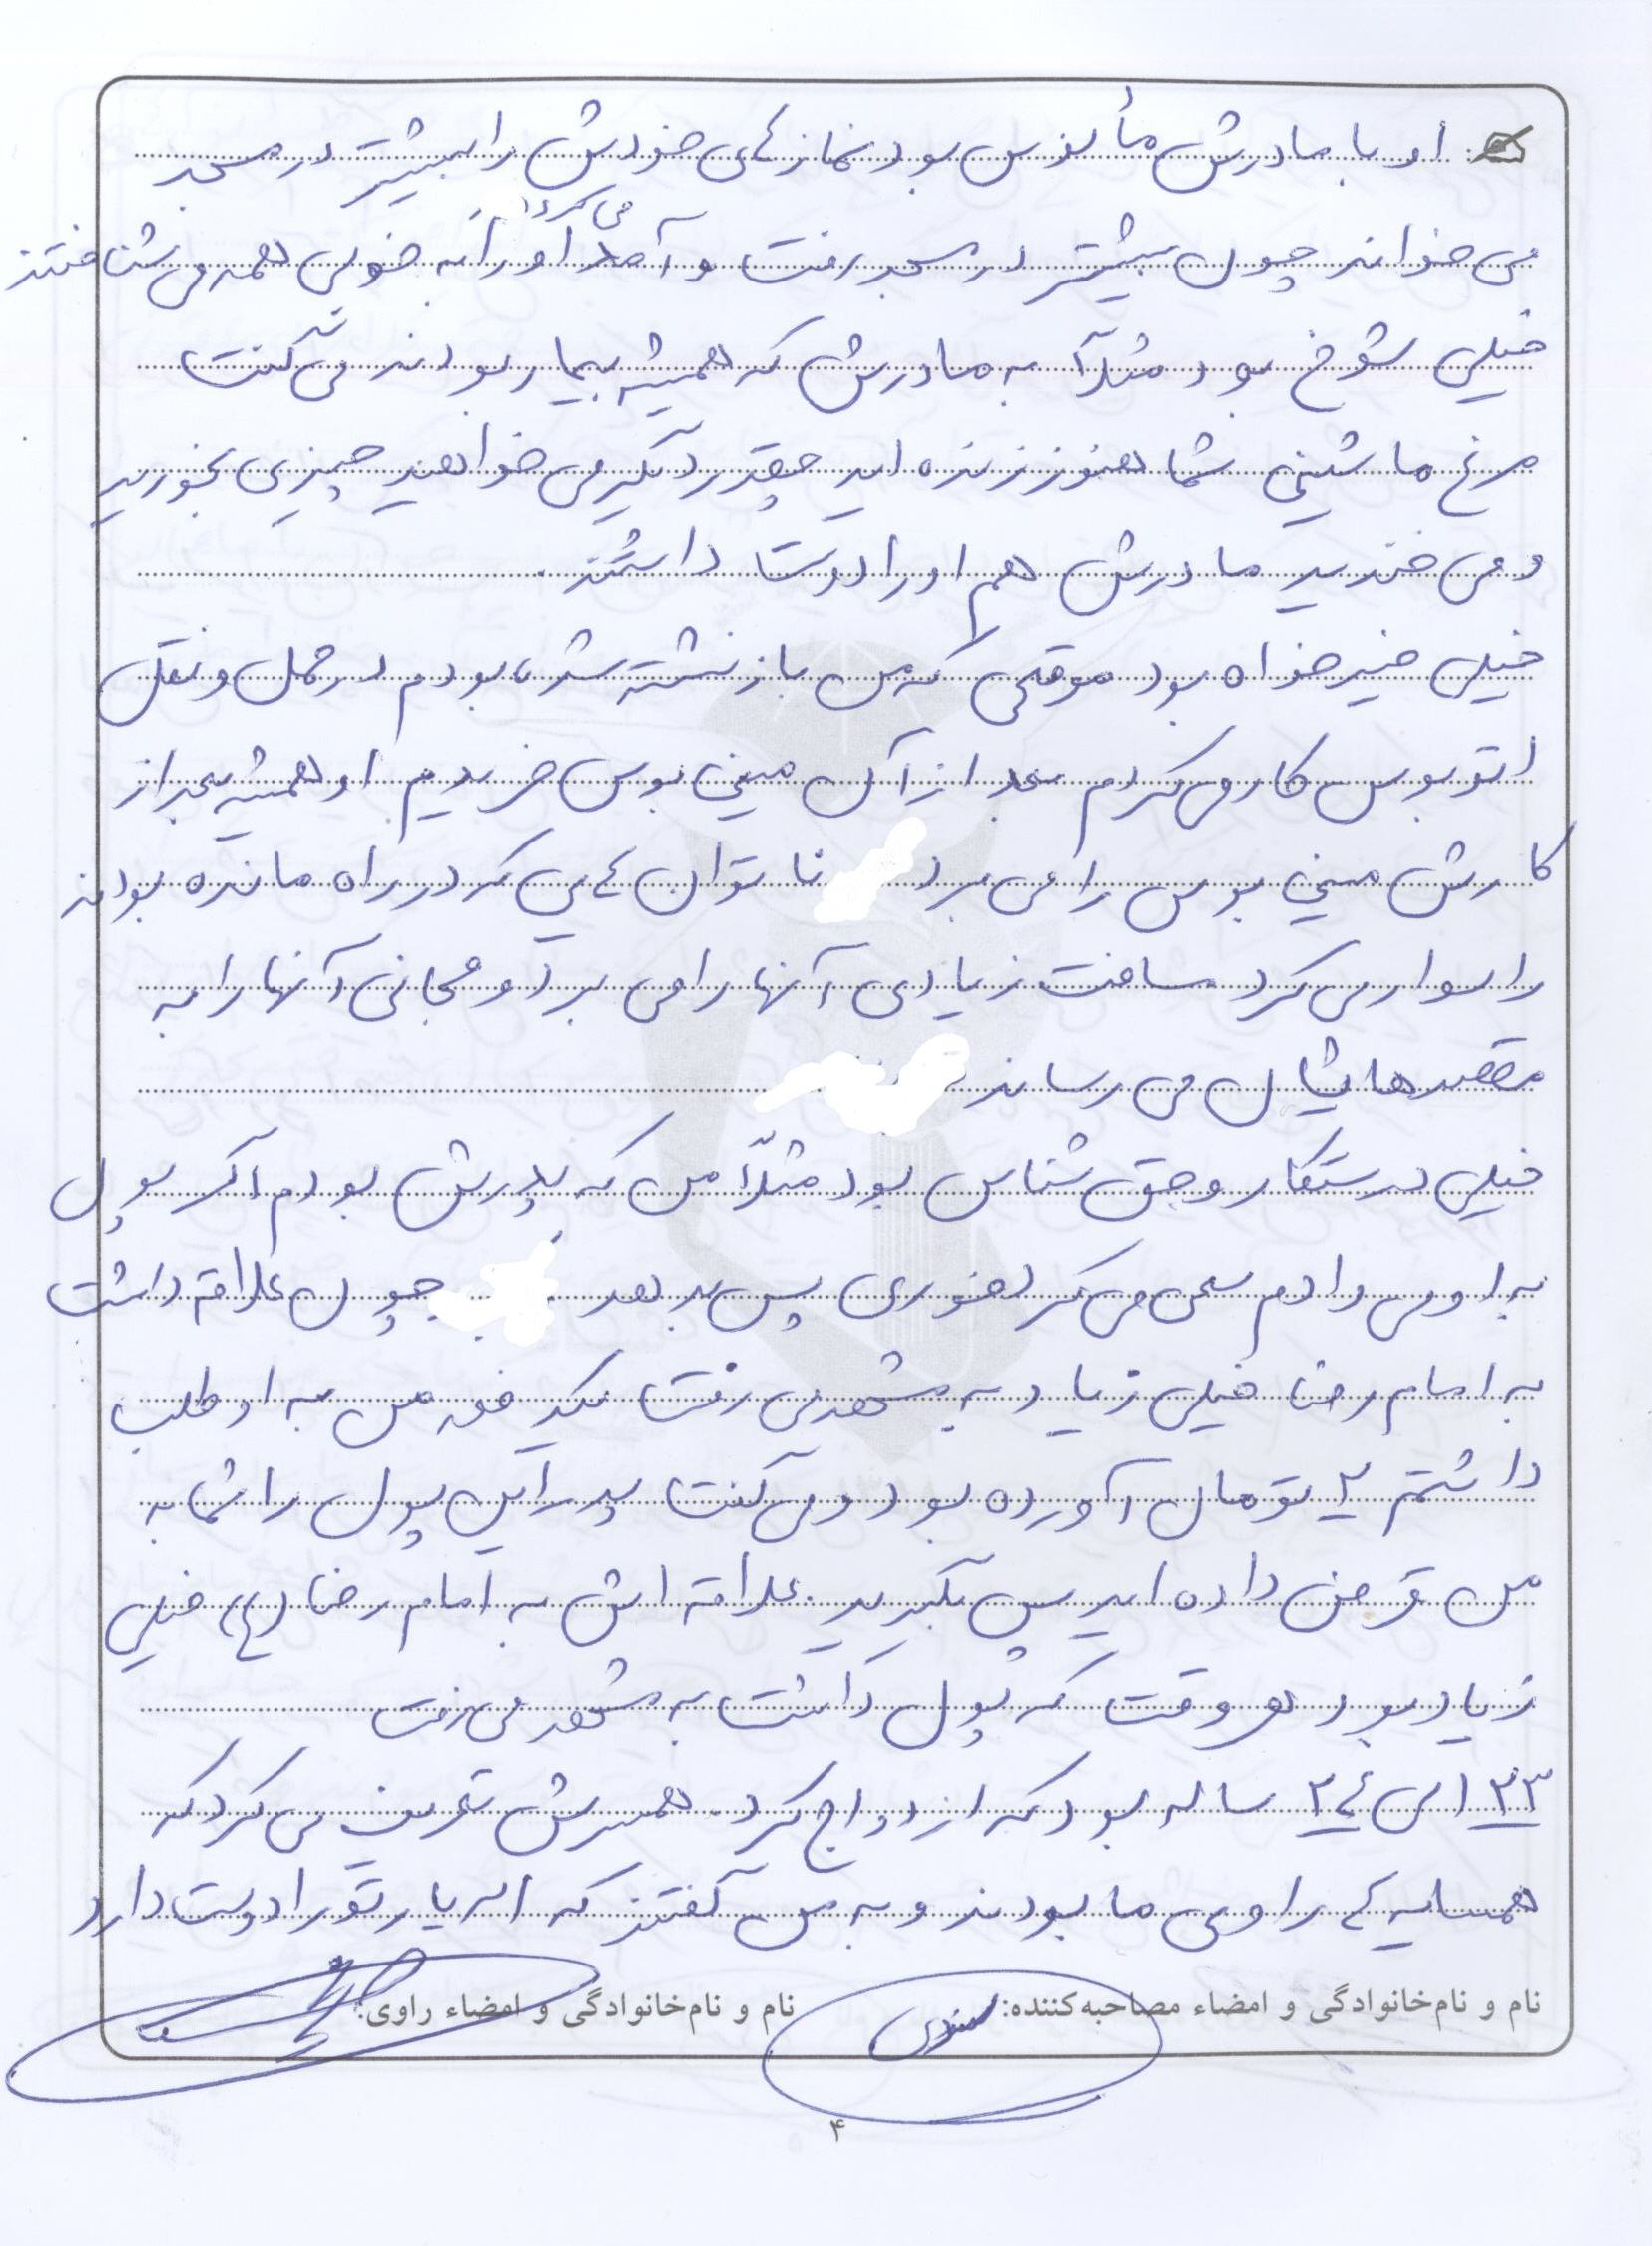 او با مادرش مأنوس بود نمازهای خودش را بیشتر در مسجد
می خواند چون بیشتر در مسجد رفت و آمد می کرد او را به خوبی همه می شناختند
خیلی شوخ بود مثلاً به مادرش که همیشه بیمار بودند می گفت
مرغ ماشینی شما هنوز زنده اید چقدر دیگر می خواهید چیزی بخورید
و می خندید مادرش هم او را دوست داشتند.
خیلی خیرخواه بود موقعی که من بازنشسته شده بودم در حمل و نقل
اتوبوس کار می کردم بعد از آن مینی بوس خریدیم او همیشه بعد از
کارش مینی بوس را می برد ناتوان هایی که در راه مانده بودند
را سوار می کرد مسافت زیادی آنها را می برد و مجانی آنها را به
مقصدهایشان می رساند
خیلی درستکار و حق شناس بود مثلاً من که پدرش بودم اگر پول
به او می دادم سعی می کرد فوری پس بدهد چون علاقه داشت
به امام رضا خیلی زیاد به مشهد می رفت یکدفعه من به او طلب
داشتم ۲ تومان آورده بود و می گفت پدر این پول را شما به
من قرض داده اید پس بگیرید. علاقه اش به امام رضا (ع) خیلی
زیاد بود هر وقت که پول داشت به مشهد می رفت
۲۳ الی ۲۴ ساله بود که ازدواج کرد. همسرش تعریف می کرد که
همسایه های ما بودند و به من گفتند که تو را دوست دارد
نام و نام‌خانوادگی و امضاء مصاحبه‌کننده: نام و نام‌خانوادگی و امضاء راوی:
۴